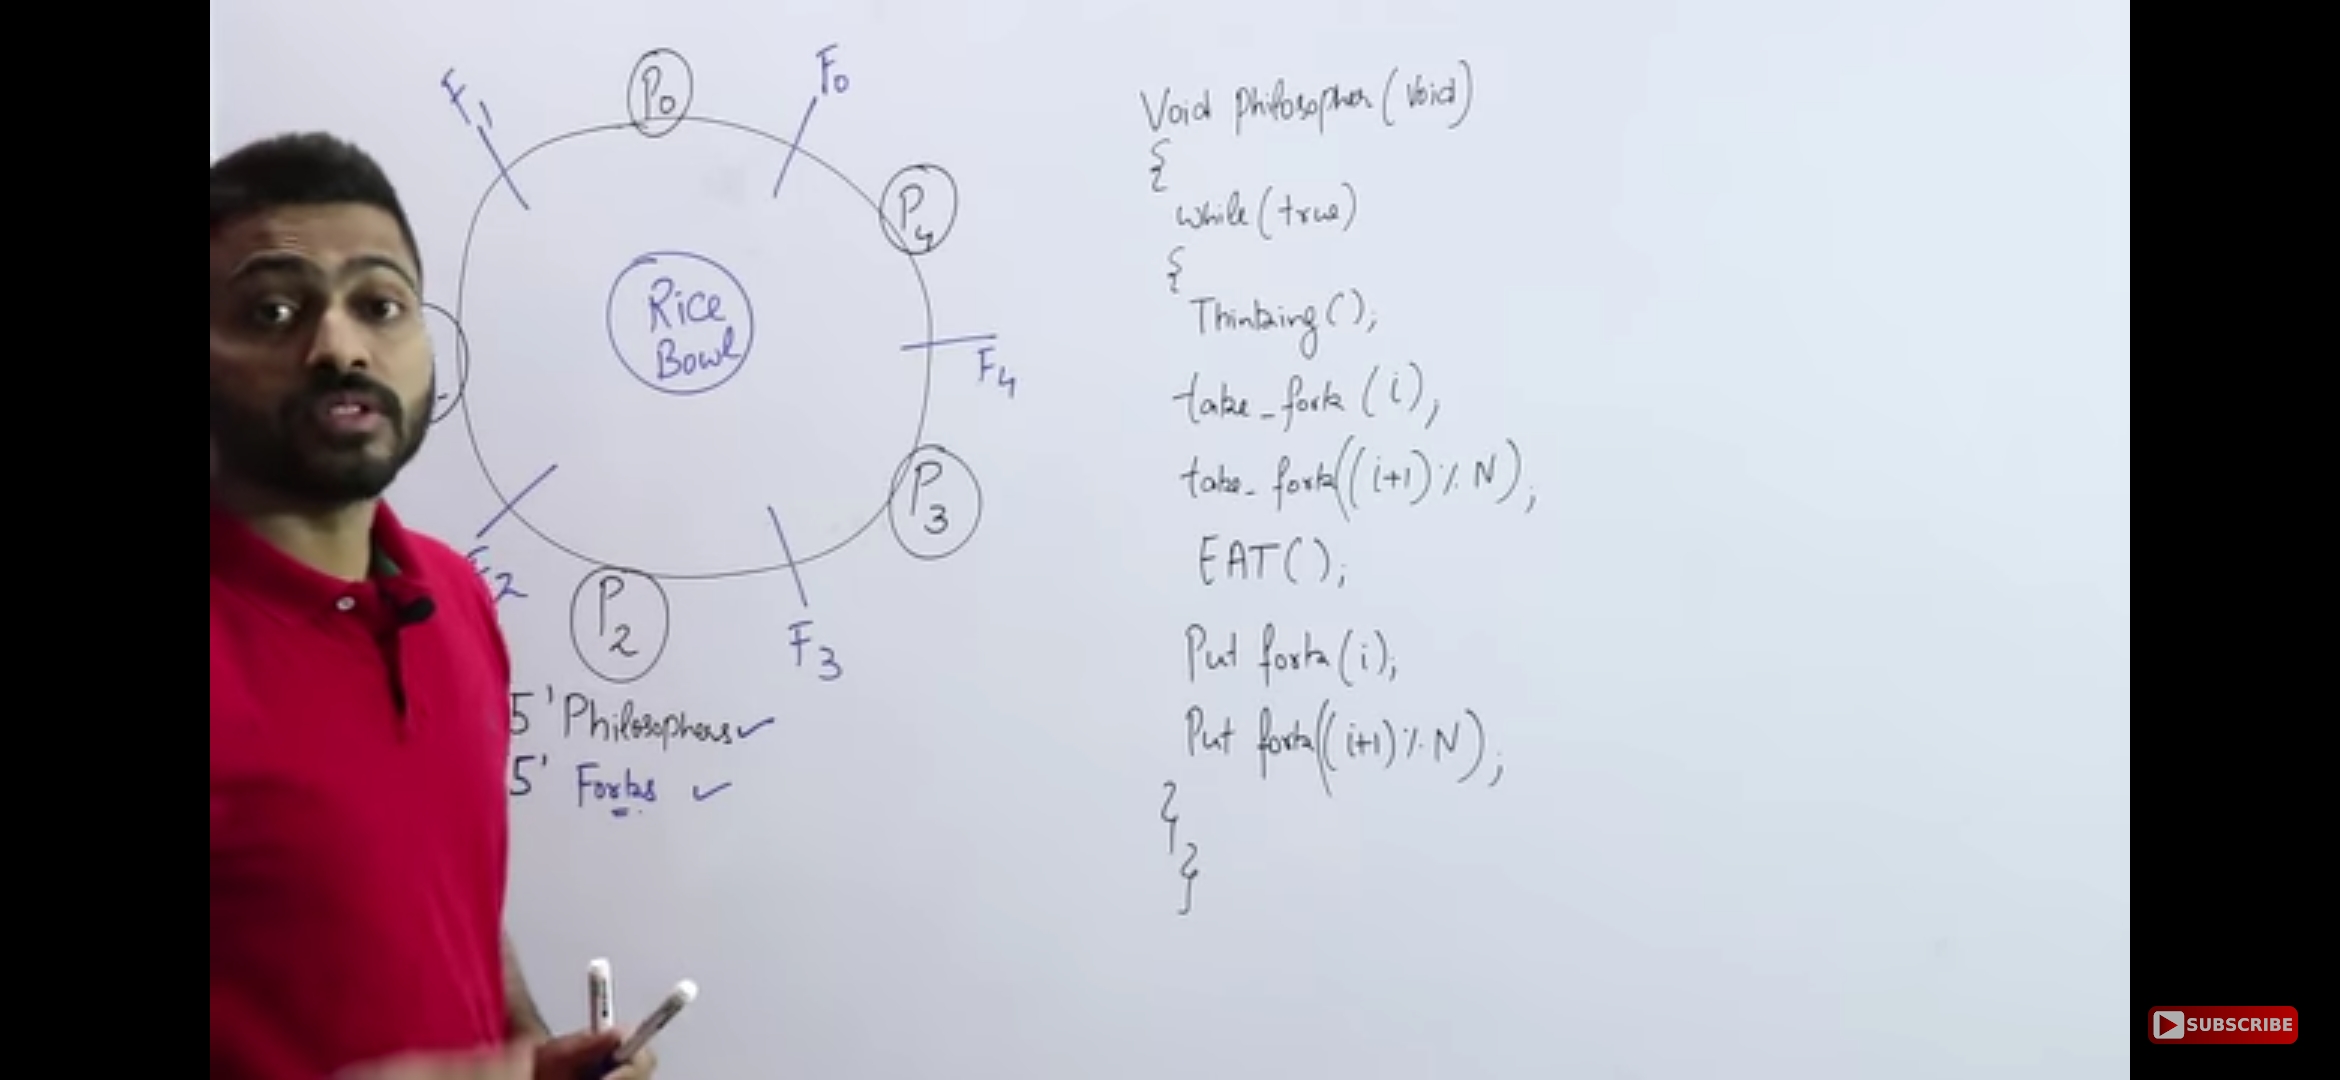 F₁
P₀
F₀
P₄
Rice
Bowl
F₄
P₃
2
P₂
F₃
5' Philosophers ✓
5' Forks ✓
Void philosopher (void)
{
while (true)
{
Thinking ( );
take_fork (i);
take_fork((i+1) % N);
EAT( );
Put fork (i);
Put fork((i+1) % N);
}
}
SUBSCRIBE